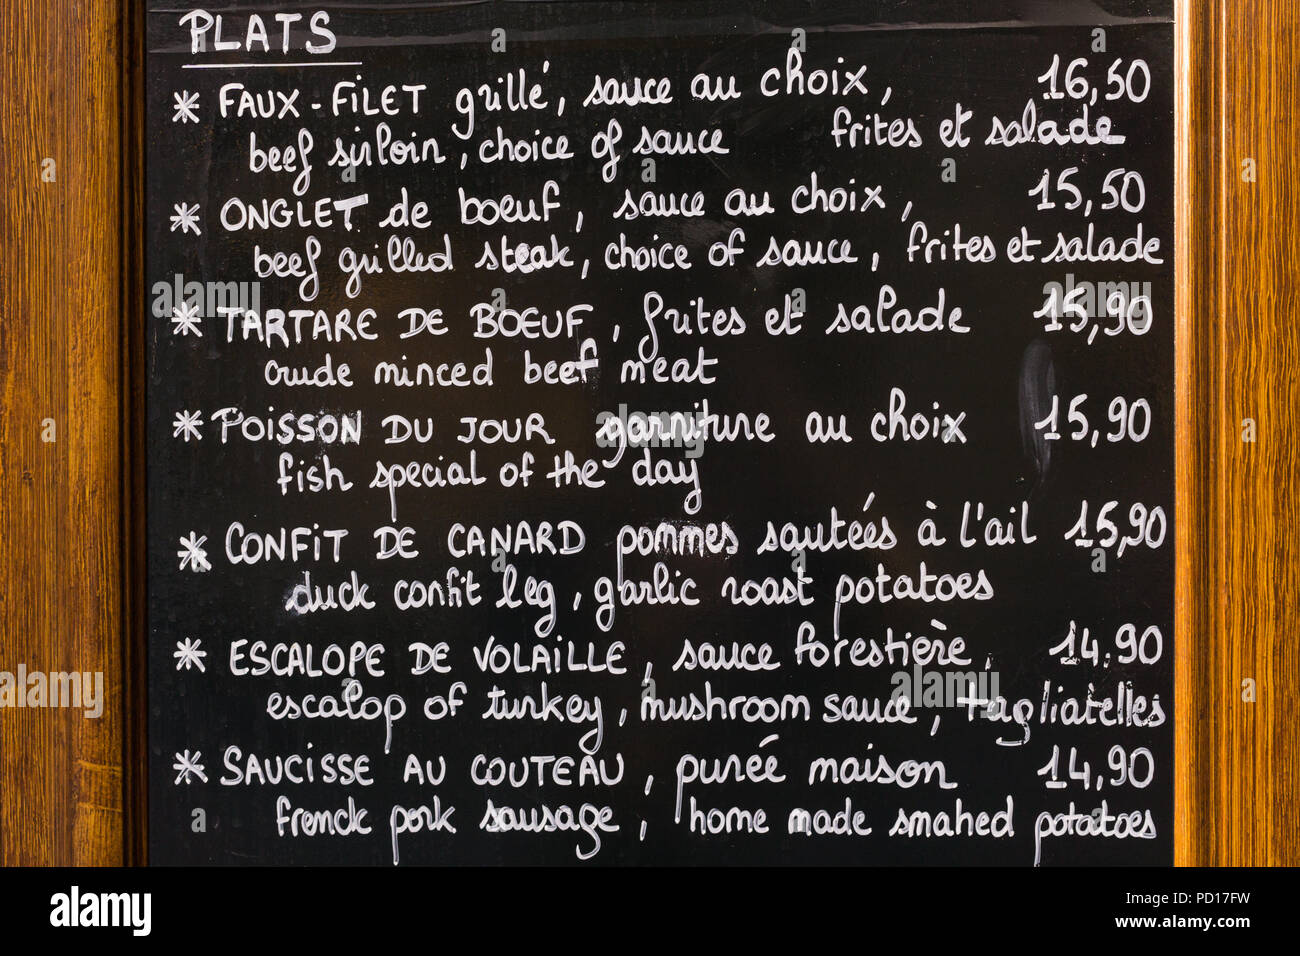 PLATS
* FAUX-FILET grillé, sauce au choix, 16,50
beef sirloin, choice of sauce frites et salade
* ONGLET de boeuf, sauce au choix, 15,50
beef grilled steak, choice of sauce, frites et salade
* TARTARE DE BOEUF, frites et salade 15,90
crude minced beef meat
* POISSON DU JOUR garniture au choix 15,90
fish special of the day
* CONFIT DE CANARD pommes sautéés à l'ail 15,90
duck confit leg, garlic roast potatoes
* ESCALOPE DE VOLAILLE, sauce forestière, 14.90
escalop of turkey, mushroom sauce, tagliatelles
* SAUCISSE AU COUTEAU, purée maison 14,90
french pork sausage, home made smahed potatoes
alamy
Image ID: PD17FW
www.alamy.com